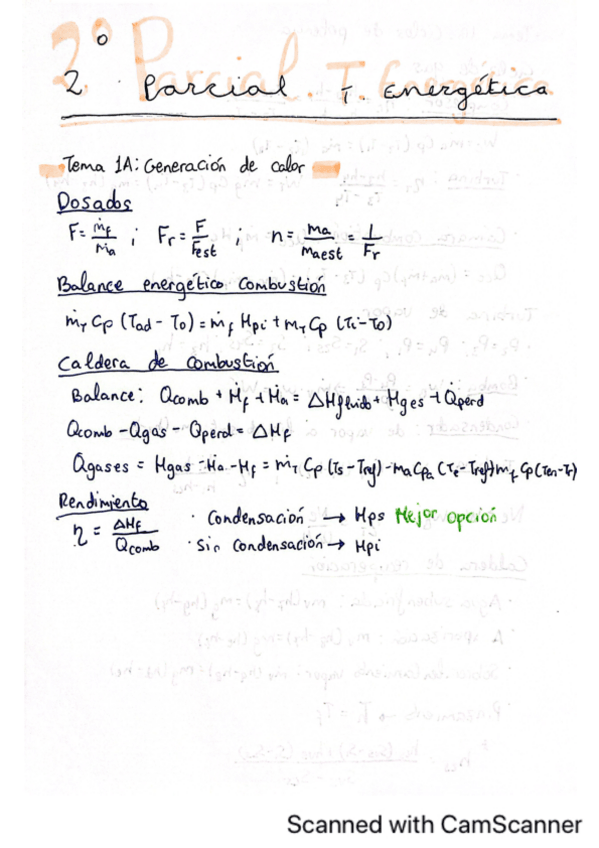 2º Parcial T. Energética
Tema 1A: Generación de calor
Dosados
F = ṁf/ṁa ; Fr = F/Fest ; n = ma/maest = 1/Fr
Balance energético combustión
ṁT Cp (Tad - To) = ṁf Hpi + mT Cp (Ti - To)
Caldera de combustión
Balance: Qcomb + Hf + Ha = ΔHfluido + Hges + Qperd
Qcomb - Qgas - Qperd = ΔHf
Qgases = Hgas - Ha - Hf = ṁT Cp (Ts - Tref) - ma Cpa (Te - Tref) mf Cp (Ten - Tr)
Rendimiento
η = ΔHf/Qcomb
· Condensación → Hps Mejor opción
· Sin Condensación → Hpi
Scanned with CamScanner